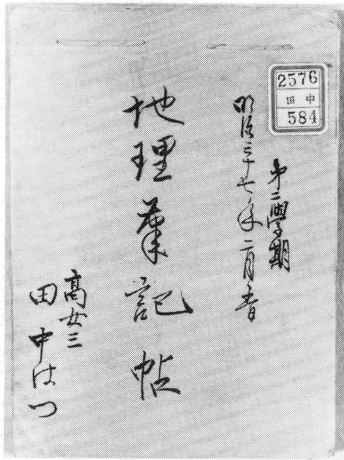 2576
田中
584
第二學期
明治三十七年
地理筆記帖
高女三
田中はつ